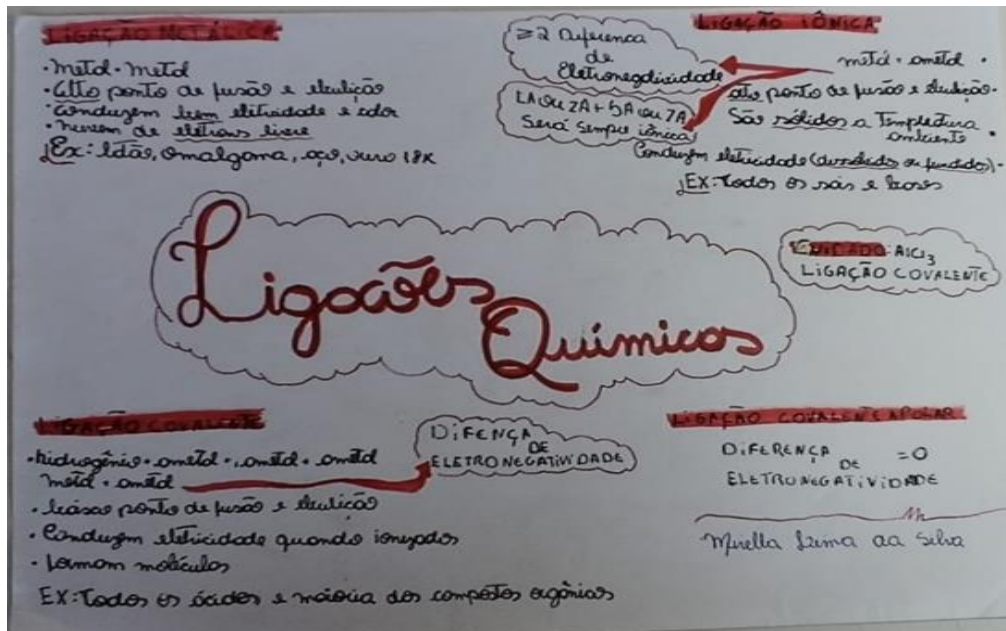 LIGAÇÃO METÁLICA
• metal - metal
• Alto ponto de fusão e ebulição
• Conduzem bem eletricidade e calor
• nuvem de elétrons livre
Ex: latão, amalgama, aço, ouro 18k
LIGAÇÃO IÔNICA
≥2 Diferença
de
Eletronegatividade
1A ou 2A + 5A ou 7A
Será sempre iônica
metal - ametal •
alto ponto de fusão e ebulição •
São sólidos a Temperatura
ambiente •
Conduzem eletricidade (dissolvidos ou fundidos) •
EX: Todos os sais e bases
Ligações
Químicas
AlCl3
LIGAÇÃO COVALENTE
LIGAÇÃO COVALENTE
• hidrogênio - ametal - ametal - ametal
metal - ametal
DIFENÇA
DE
ELETRONEGATIVIDADE
• baixo ponto de fusão e ebulição
• Conduzem eletricidade quando ionizados
• formam moléculas
EX: Todos os ácidos e maioria dos compostos orgânicos
LIGAÇÃO COVALENTE APOLAR
DIFERENÇA
DE =0
ELETRONEGATIVIDADE
Mirella Lima da Silva